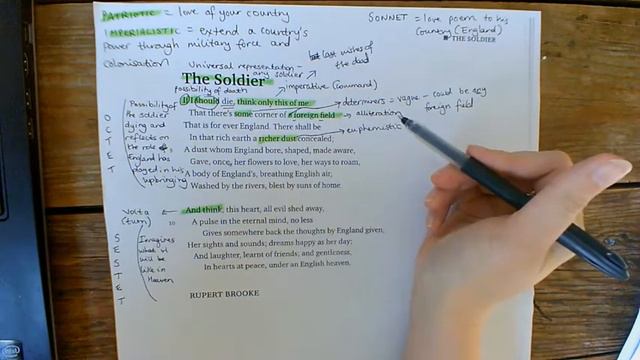 PATRIOTIC = love of your country
IMPERIALISTIC = extend a country's
power through military force and
colonisation
SONNET = love poem to his
country (England)
THE SOLDIER
Universal representation -
any soldier
last wishes of
the dead
The Soldier
possibility of death
imperative (command)
If I should die, think only this of me:
That there's some corner of a foreign field
That is for ever England. There shall be
In that rich earth a richer dust concealed;
A dust whom England bore, shaped, made aware,
Gave, once, her flowers to love, her ways to roam,
A body of England's, breathing English air,
Washed by the rivers, blest by suns of home.
determiners = vague - could be any
foreign field
alliteration
euphemistic
OCTET
Possibility of
the soldier
dying and
reflects on
the role of
England has
played in his
upbringing
Volta
(turn)
10
And think, this heart, all evil shed away,
A pulse in the eternal mind, no less
Gives somewhere back the thoughts by England given,
Her sights and sounds; dreams happy as her day;
And laughter, learnt of friends; and gentleness,
In hearts at peace, under an English heaven.
SESTET
Imagines
what it
will be
like in
Heaven
RUPERT BROOKE
intel